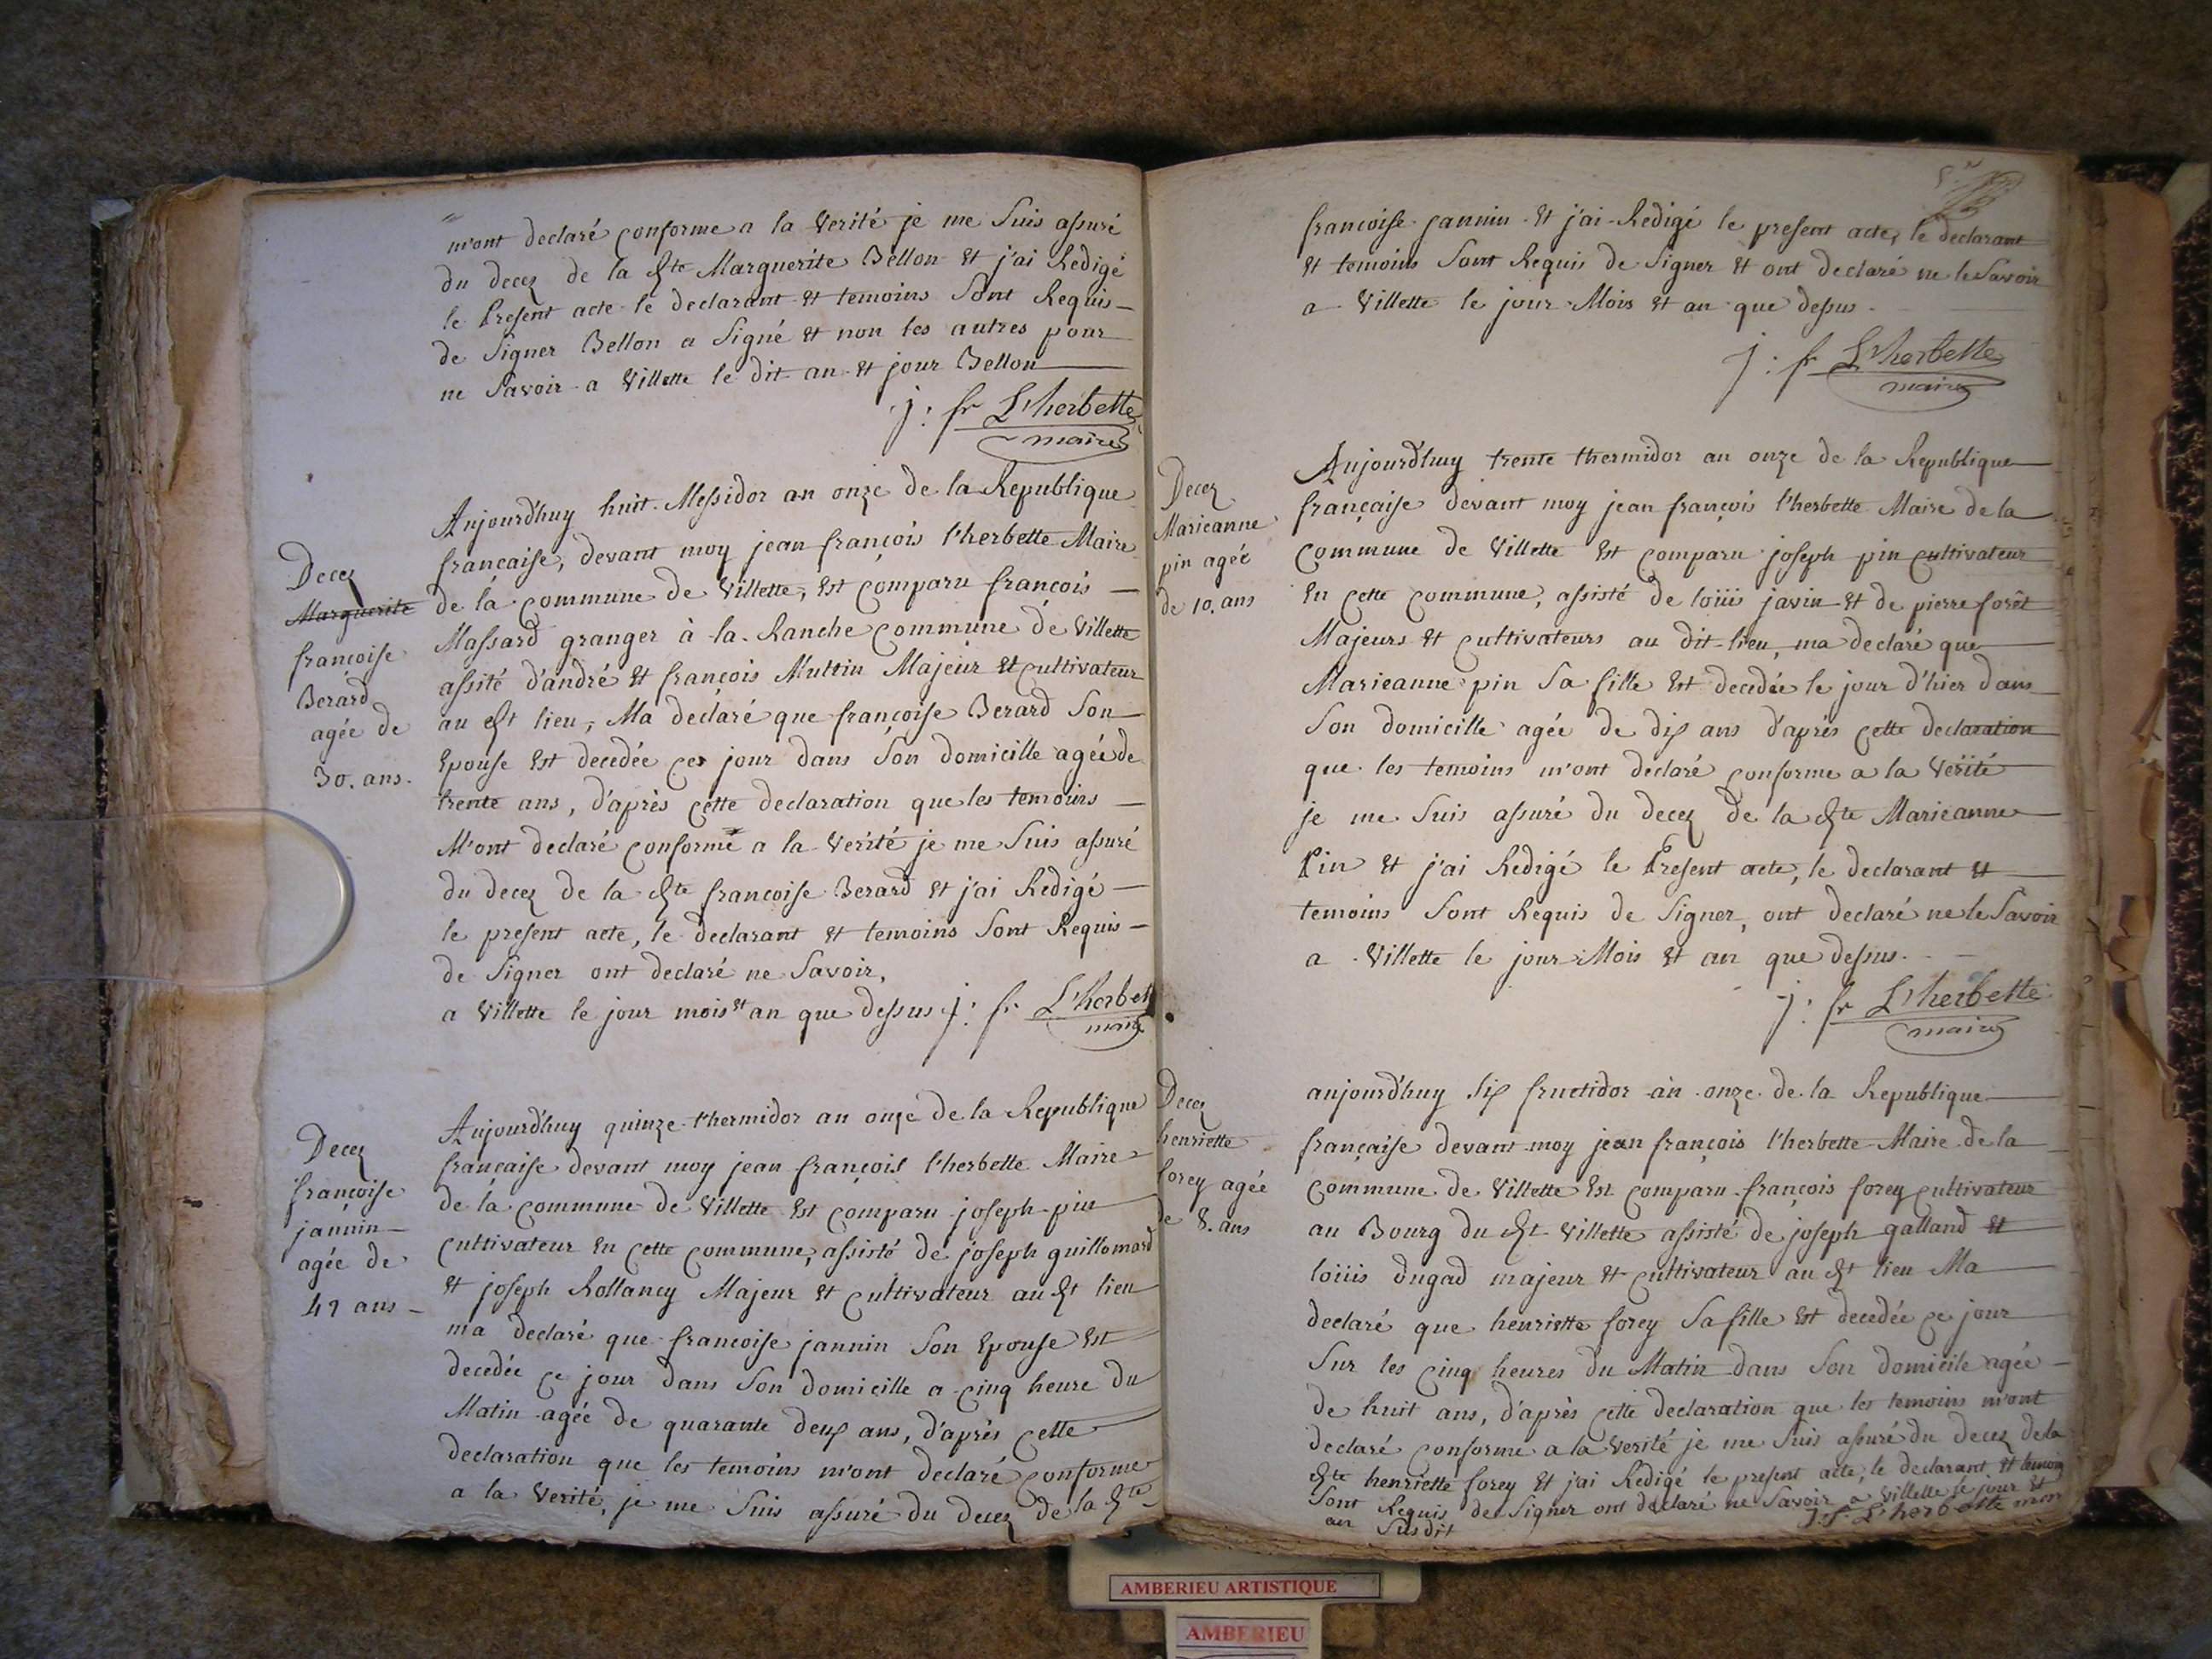 m'ont declaré conforme a la verité je me suis assuré
du decez de la dte Marguerite Bellon et j'ai Redigé
le Present acte le declarant et temoins sont Requis
de signer Bellon a signé et non les autres pour
ne savoir a villette le dit an et jour Bellon
j: fr L'herbette
maire
Decez
Marguerite
françoise
Berard
agée de
30. ans.
Aujourd'huy huit Messidor an onze de la Republique
francaise, devant moy jean françois l'herbette Maire
de la commune de villette, est comparu françois
Massard granger à la Ranche commune de villette
assité d'andré et françois Muttin Majeur et cultivateur
au dt lieu, Ma declaré que françoise Berard son
Epouse est decedée ce jour dans son domicille agée de
trente ans, d'après cette declaration que les temoins
M'ont declaré conforme a la verité je me suis assuré
du decez de la dte francoise Berard et j'ai Redigé
le present acte, le declarant et temoins sont Requis
de signer ont declaré ne savoir,
a villette le jour mois et an que dessus j: fr. L'herbett
maire
Decez
françoise
jannin
agée de
42 ans
Aujourd'huy quinze thermidor an onze de la Republique
francaise devant moy jean françois l'herbette Maire
de la commune de villette est comparu joseph pin
cultivateur en cette commune, assisté de joseph guillomard
et joseph Rollancy Majeur et cultivateur au dt lieu
ma declaré que francoise jannin son epouse est
decedée ce jour dans son domicille a cinq heure du
Matin agée de quarante deux ans, d'après cette
declaration que les temoins m'ont declaré conforme
a la verité, je me suis assuré du decez de la dte
francoise jannin et j'ai Redigé le present acte, le declarant
et temoins sont Requis de signer et ont declaré ne le savoir
a villette le jour Mois et an que dessus.
j: fr L'herbette
maire
Decez
Marieanne
pin agée
de 10. ans
Aujourd'huy trente thermidor an onze de la Republique
française devant moy jean françois l'herbette Maire de la
commune de villette est comparu joseph pin cultivateur
en cette commune, assisté de loüis javin et de pierre forêt
Majeurs et cultivateurs au dit lieu, ma declaré que
Marieanne pin sa fille est decedée le jour d'hier dans
son domicille agée de dix ans d'après cette declaration
que les temoins m'ont declaré conforme a la verité
je me suis assuré du decez de la dte Marieanne
Pin et j'ai Redigé le Present acte, le declarant et
temoins sont Requis de signer, ont declaré ne le savoir
a villette le jour Mois et an que dessus.
j: fr L'herbette
maire
Decez
henriette
forey agée
de 8. ans
aujourd'huy six fructidor an onze de la Republique
française devant moy jean françois l'herbette Maire de la
commune de villette est comparu françois forey cultivateur
au Bourg du dt villette assisté de joseph galland et
loüis dugad majeur et cultivateur au dt lieu Ma
declaré que henriette forey sa fille est decedée ce jour
sur les cinq heures du Matin dans son domicile agée
de huit ans, d'après cette declaration que les temoins m'ont
declaré conforme a la verité je me suis assuré du decez de la
dte henriette forey et j'ai Redigé le present acte, le declarant et temoins
sont Requis de signer ont declaré ne savoir a villette le jour et
an susdit j. f. L'herbette
AMBERIEU ARTISTIQUE
AMBERIEU